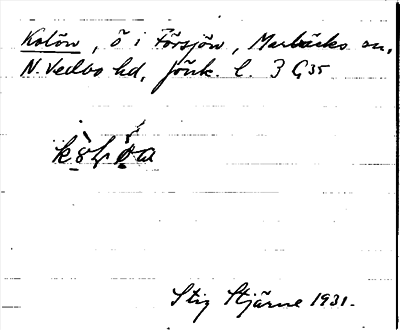 Kolön, ö i Försjön, Marbäcks sn,
N. Vedbo hd, Jönk. l. 3 G35
Stig Stjärne 1931.